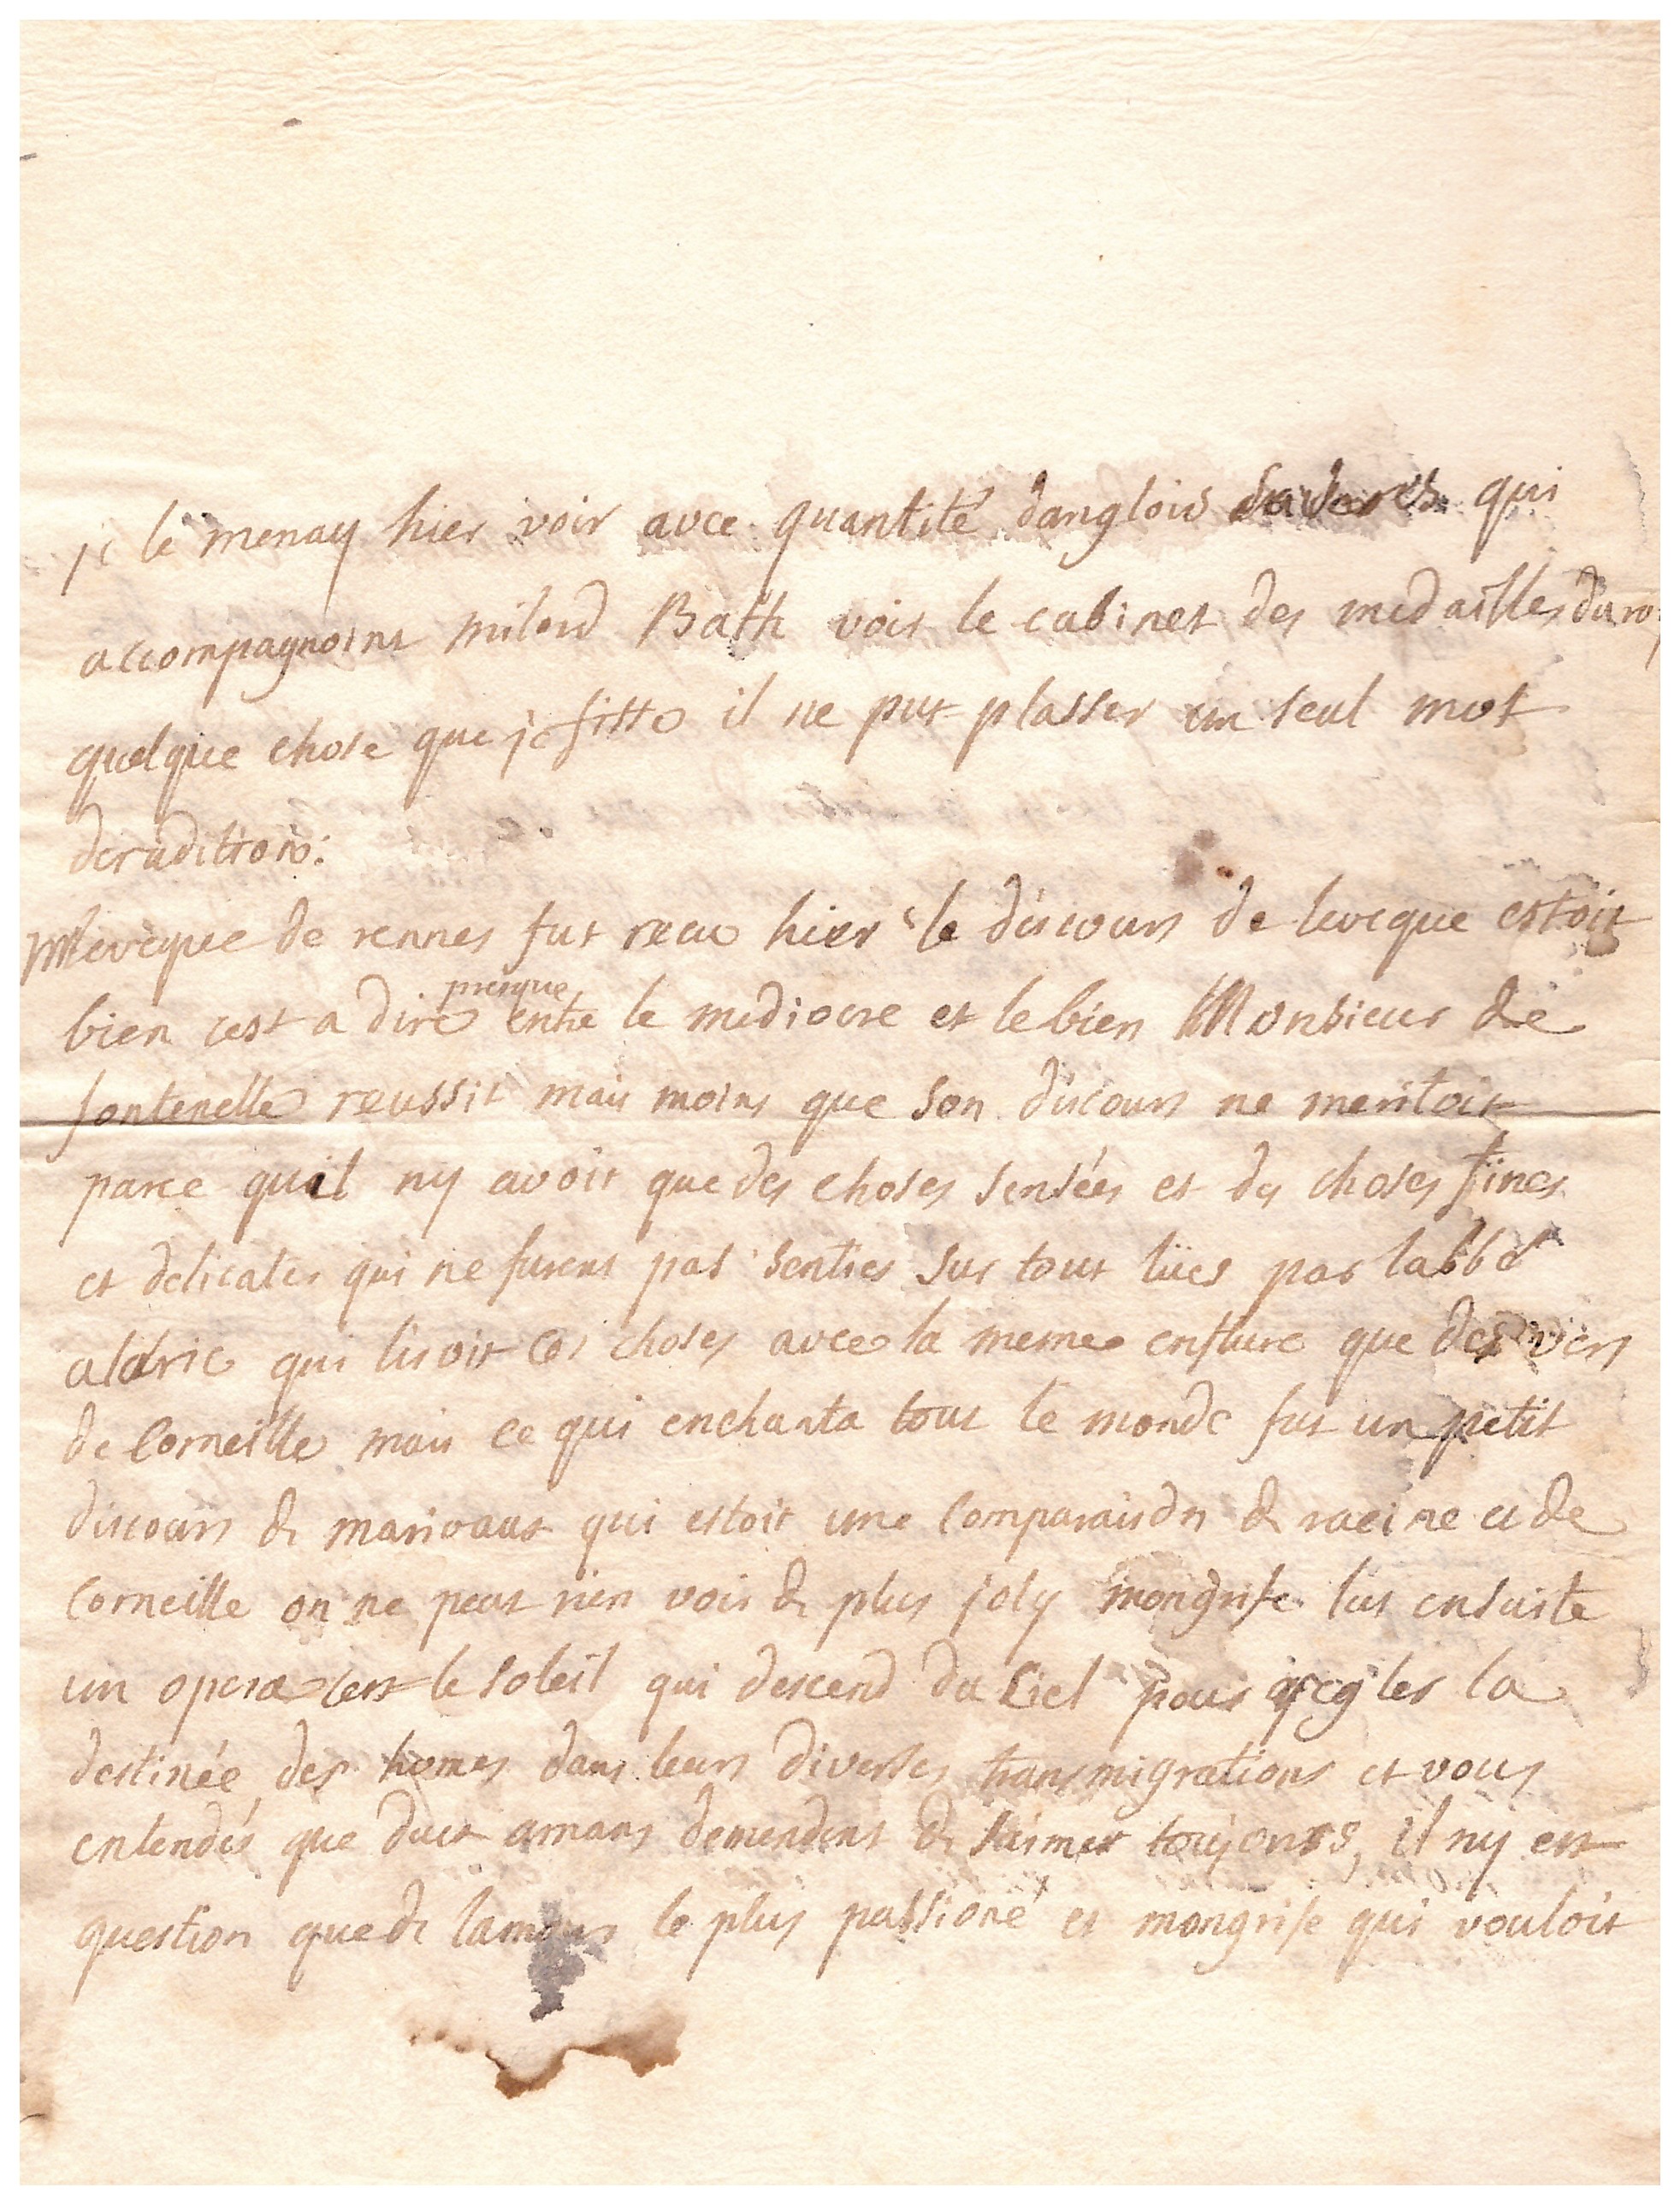 je le menay hier voir avec quantité danglois savants qui
accompagnoint milord Bath voir le cabinet des medailles du roy
quelque chose que je fisse il ne put plasser un seul mot
derudition:
Mr leveque de rennes fut recu hier le discours de leveque estoit
bien cest a dire presque entre le mediocre et le bien Monsieur de
fontenelle reussit mais moins que son discours ne meritoit
parce quil ny avoit que des choses sensées et des choses fines
et delicates qui ne furent pas senties sur tout lües par labbé
alaric qui lisoit ces choses avec la meme enflure que des vers
de Corneille mais ce qui enchanta tout le monde fut un petit
discours de marivaut qui estoit une comparaison de racine et de
Corneille on ne peut rien voir de plus joly mongrife lut ensuite
un opera cest le soleil qui descend du Ciel pour regler la
destinée des homes dans leurs diverses transmigrations et vous
entendés que deux amans demendent de saimer toujours, il ny est
question que de lamour le plus passioné et mongrife qui vouloit